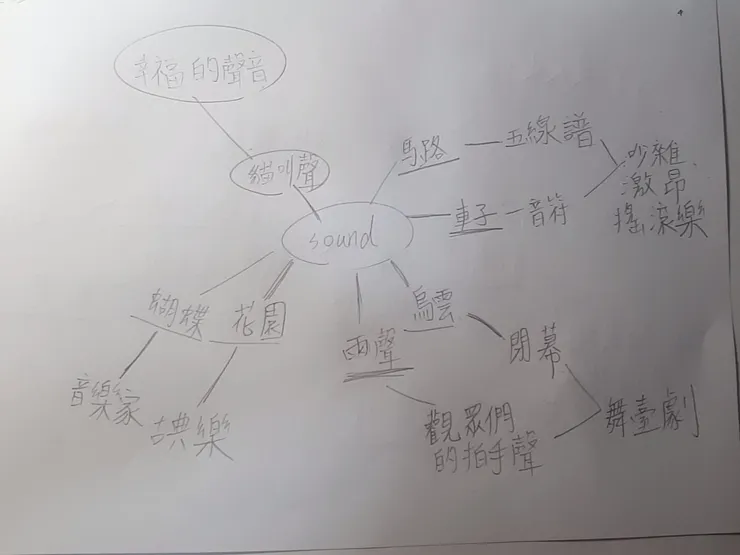 幸福的聲音
貓叫聲
sound
馬路
五線譜
吵雜
激昂
搖滾樂
車子
音符
蝴蝶
花園
音樂家
古典樂
雨聲
烏雲
閉幕
觀眾們
的拍手聲
舞臺劇